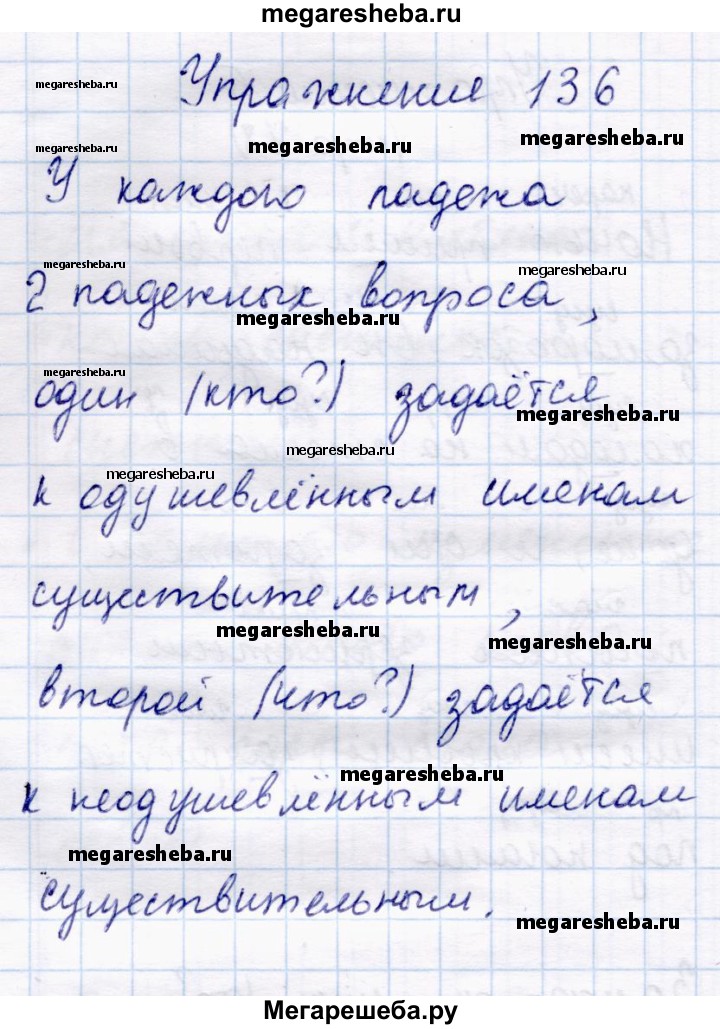 megaresheba.ru
megaresheba.ru
Упражнение 136
megaresheba.ru
megaresheba.ru
megaresheba.ru
У каждого падежа
megaresheba.ru
megaresheba.ru
2 падежных вопроса,
megaresheba.ru
megaresheba.ru
один (кто?) задаётся
megaresheba.ru
megaresheba.ru
megaresheba.ru
к одушевлённым именам
существительным,
megaresheba.ru
megaresheba.ru
второй (что?) задаётся
megaresheba.ru
к неодушевлённым именам
megaresheba.ru
существительным.
megaresheba.ru
Мегарешеба.ру